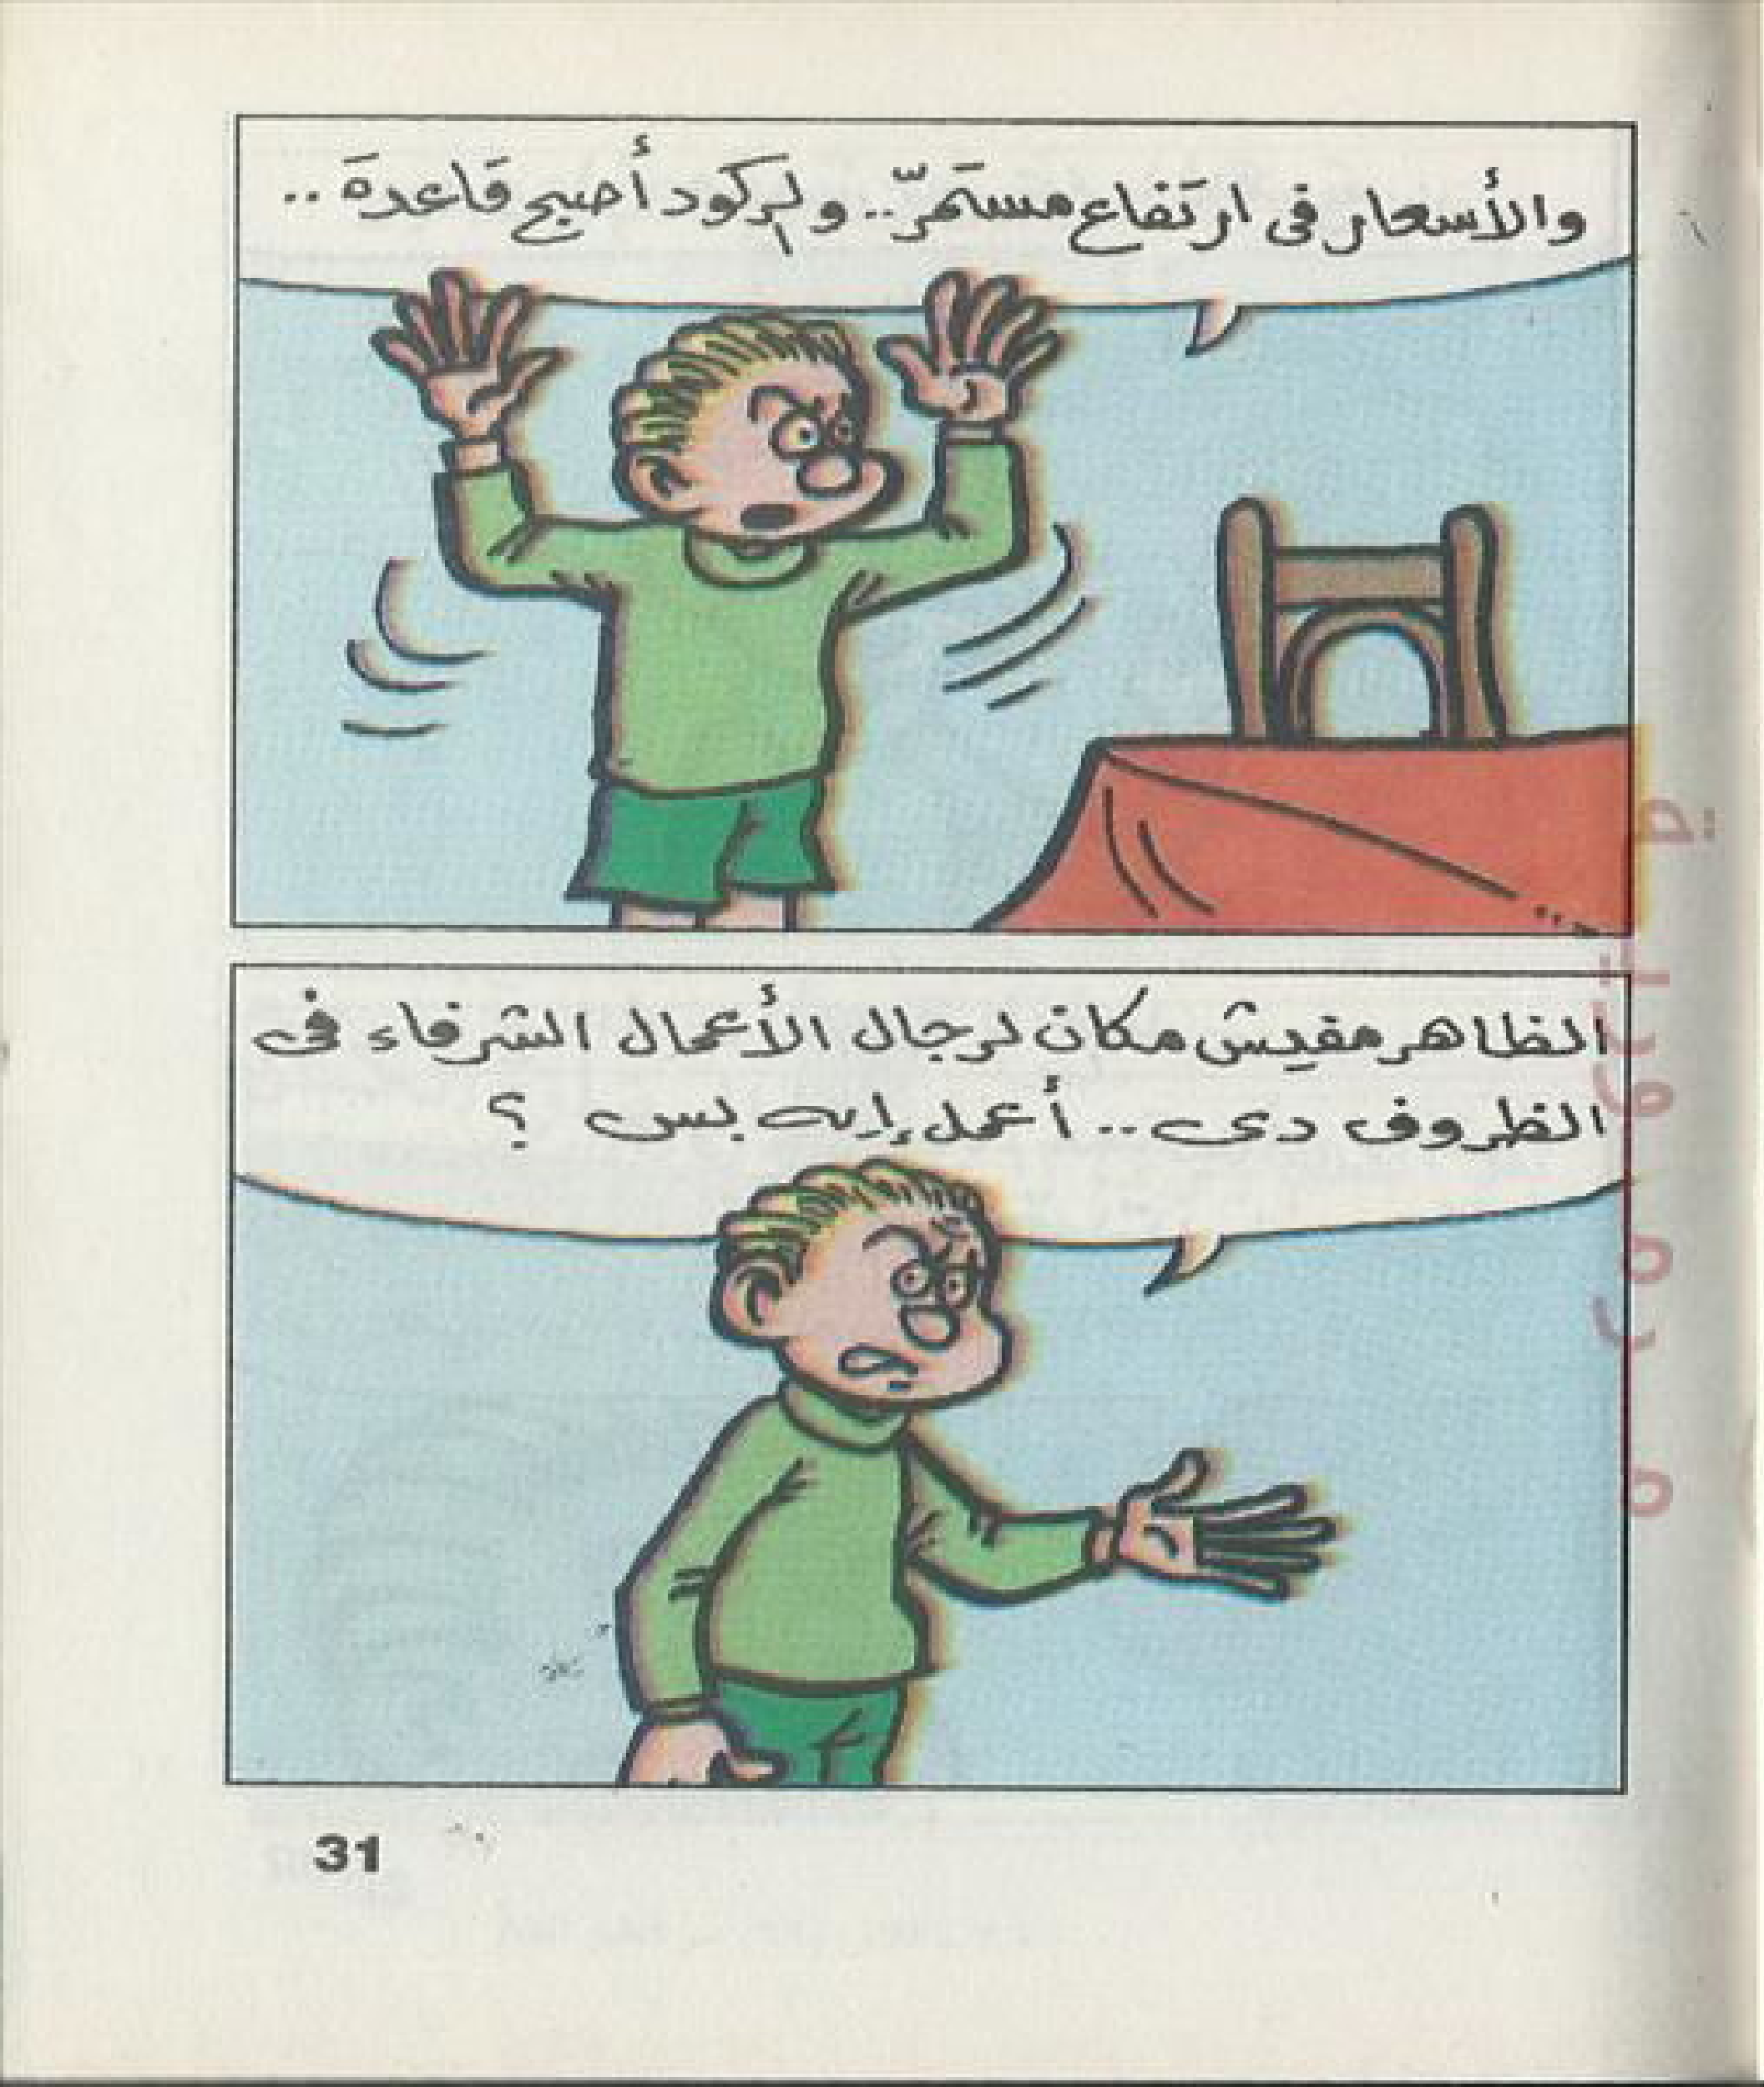 والأسعار فى ارتفاع مستمرّ.. والركود أصبح قاعدة ..
الظاهر مفيش مكان لرجال الأعمال الشرفاء فى
الظروف دى .. أعمل إيه بس ؟
31